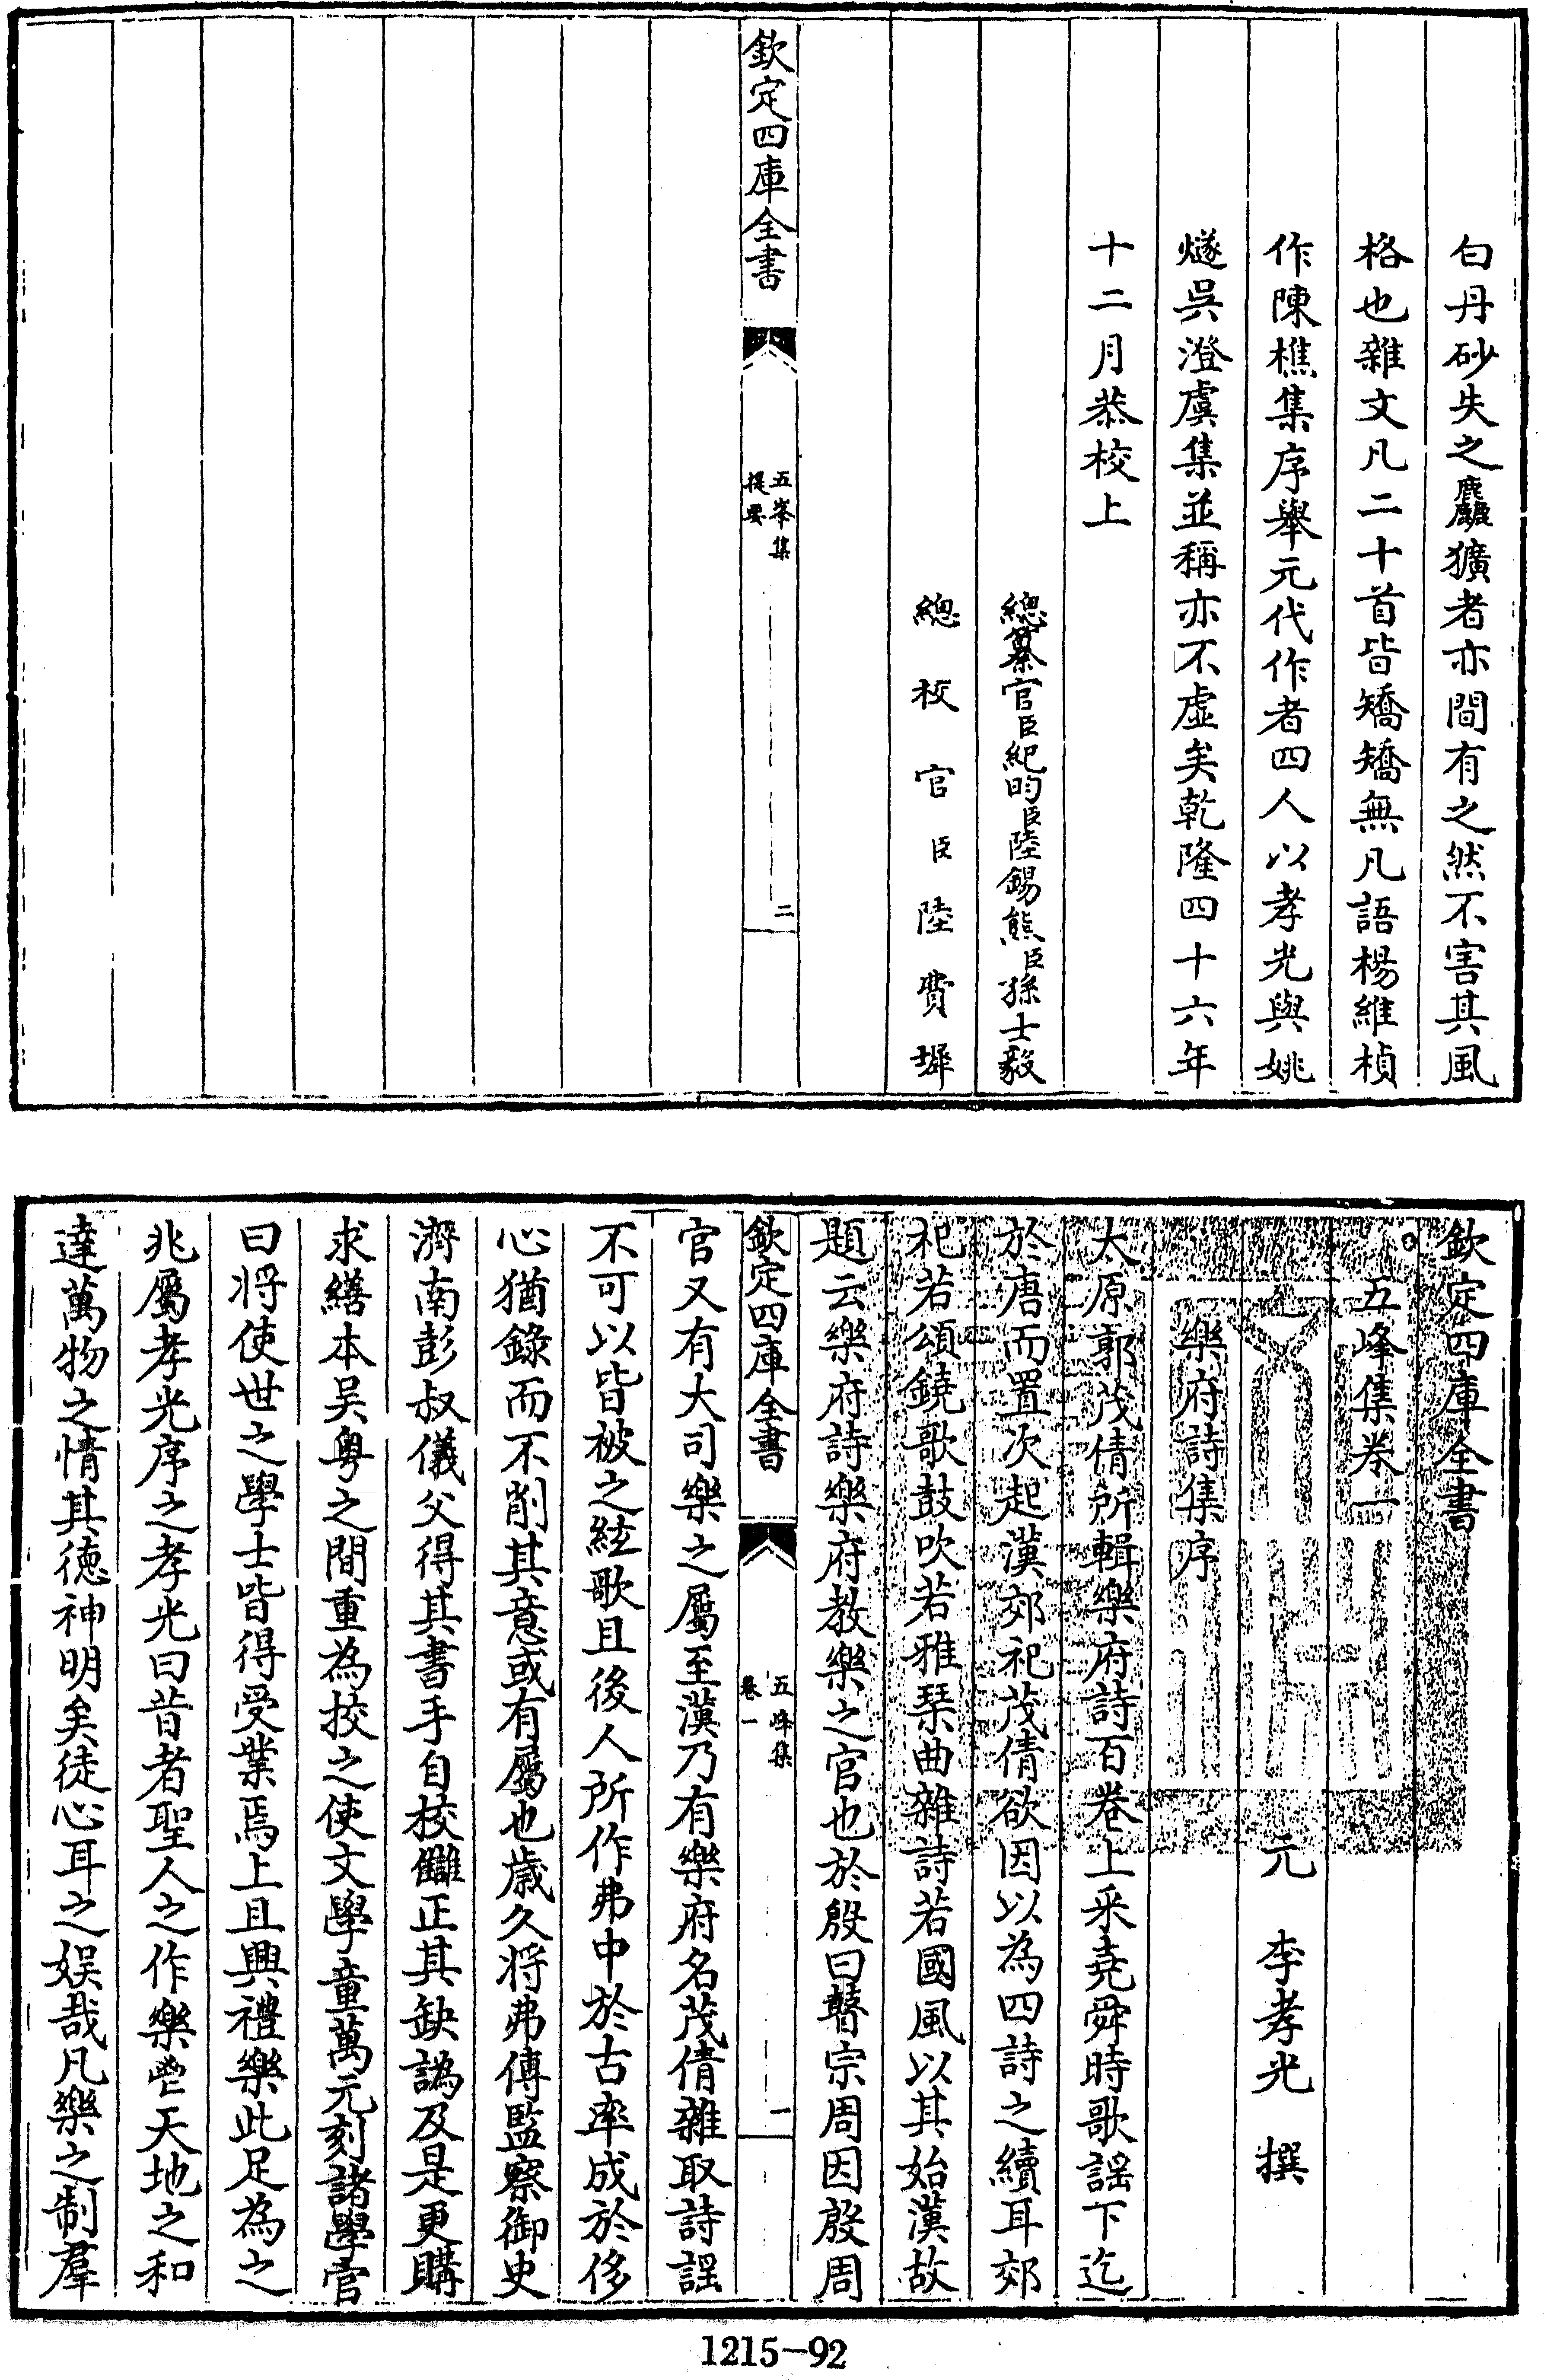 白丹砂失之麤獷者亦間有之然不害其風
格也雜文凡二十首皆矯矯無凡語楊維楨
作陳樵集序舉元代作者四人以孝光與姚
燧吳澄虞集並稱亦不虛矣乾隆四十六年
十二月恭校上
總纂官臣紀昀臣陸錫熊臣孫士毅
總校官臣陸費墀
欽定四庫全書
五峯集
提要
二
欽定四庫全書
五峰集卷一
元 李孝光 撰
樂府詩集序
太原郭茂倩所輯樂府詩百卷上采堯舜時歌謡下迄
於唐而置次起漢郊祀茂倩欲因以為四詩之續耳郊
祀若頌鐃歌鼓吹若雅琴曲雜詩若國風以其始漢故
題云樂府詩樂府教樂之官也於殷曰瞽宗周因殷周
欽定四庫全書
五峰集
卷一
一
官又有大司樂之屬至漢乃有樂府名茂倩雜取詩謡
不可以皆被之絃歌且後人所作弗中於古率成於侈
心猶錄而不削其意或有屬也歲久將弗傳監察御史
濟南彭叔儀父得其書手自校讎正其缺譌及是更購
求繕本吳粤之間重為挍之使文學童萬元刻諸學官
曰将使世之學士皆得受業焉上且興禮樂此足為之
兆屬孝光序之孝光曰昔者聖人之作樂也天地之和
達萬物之情其德神明矣徒心耳之娛哉凡樂之制羣
1215-92